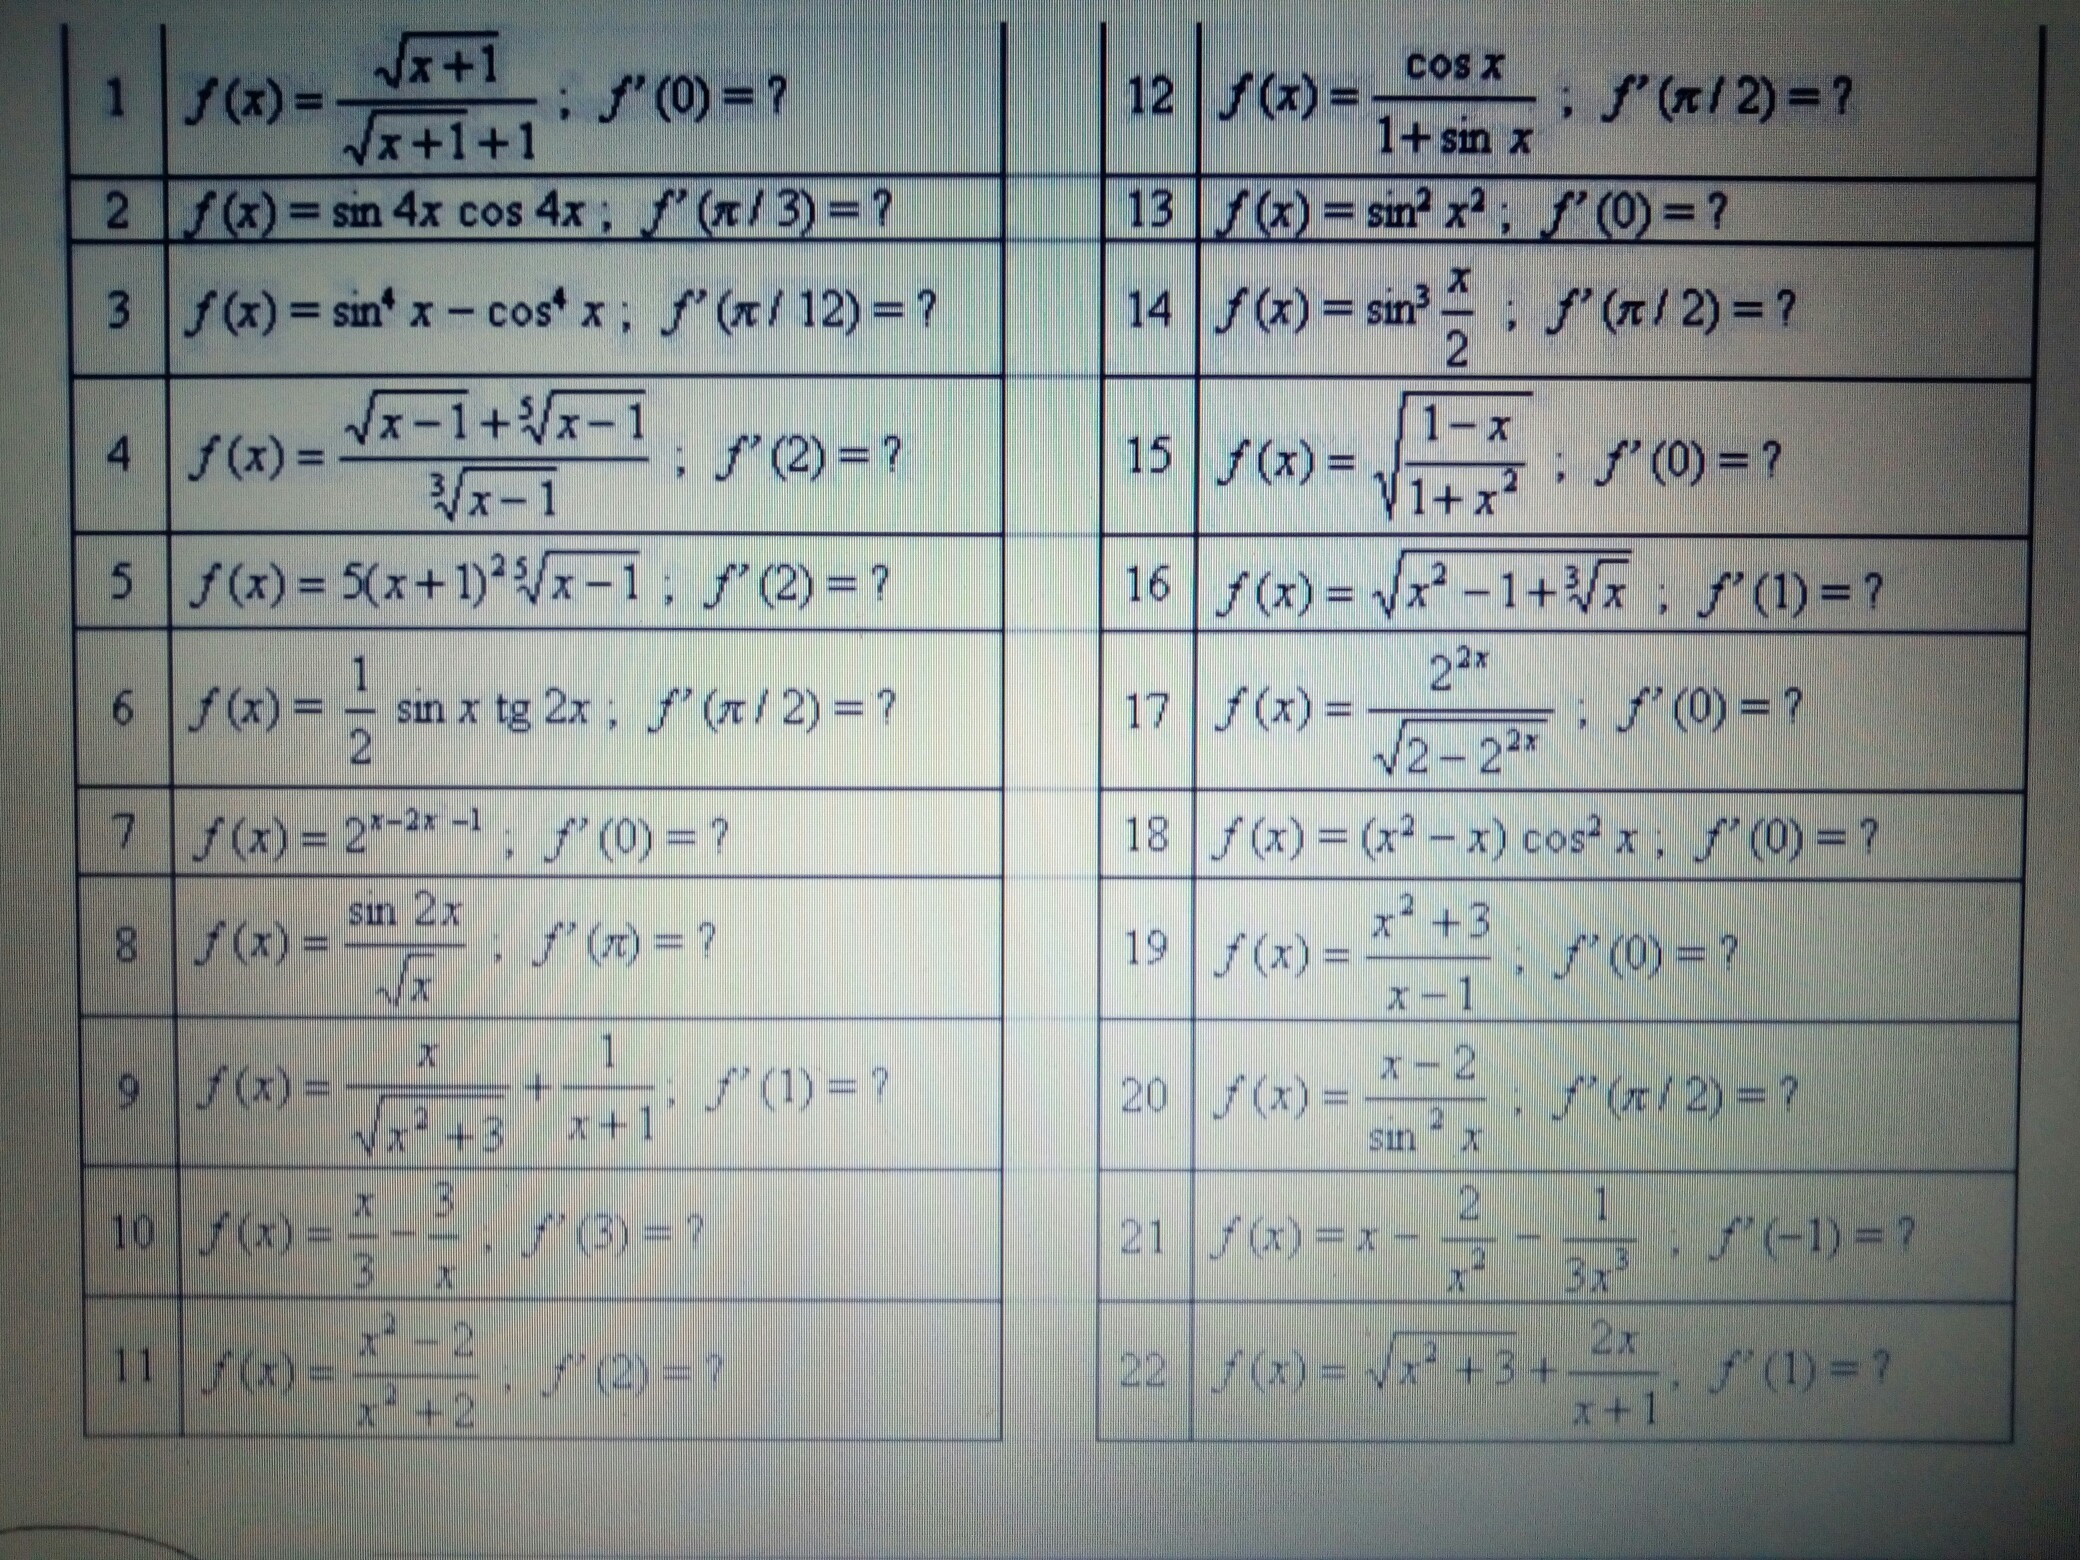 1 f(x) = √(x+1) / (√(x+1) + 1) ; f'(0) = ?
2 f(x) = sin 4x cos 4x ; f'(π/3) = ?
3 f(x) = sin⁴ x − cos⁴ x ; f'(π/12) = ?
4 f(x) = (√(x−1) + ⁵√(x−1)) / ³√(x−1) ; f'(2) = ?
5 f(x) = 5(x+1)² ⁵√(x−1) ; f'(2) = ?
6 f(x) = 1/2 sin x tg 2x ; f'(π/2) = ?
7 f(x) = 2^(x−2x−1) ; f'(0) = ?
8 f(x) = sin 2x / √x ; f'(π) = ?
9 f(x) = x / √(x²+3) + 1 / (x+1) ; f'(1) = ?
10 f(x) = x/3 − 3/x ; f'(3) = ?
11 f(x) = (x²−2) / (x²+2) ; f'(2) = ?
12 f(x) = cos x / (1+sin x) ; f'(π/2) = ?
13 f(x) = sin² x² ; f'(0) = ?
14 f(x) = sin³ x/2 ; f'(π/2) = ?
15 f(x) = √((1−x) / (1+x²)) ; f'(0) = ?
16 f(x) = √(x²−1+³√x) ; f'(1) = ?
17 f(x) = 2^(2x) / √(2−2^(2x)) ; f'(0) = ?
18 f(x) = (x²−x) cos² x ; f'(0) = ?
19 f(x) = (x²+3) / (x−1) ; f'(0) = ?
20 f(x) = (x−2) / sin² x ; f'(π/2) = ?
21 f(x) = x − 2/x² − 1/(3x³) ; f'(−1) = ?
22 f(x) = √(x²+3) + 2x / (x+1) ; f'(1) = ?